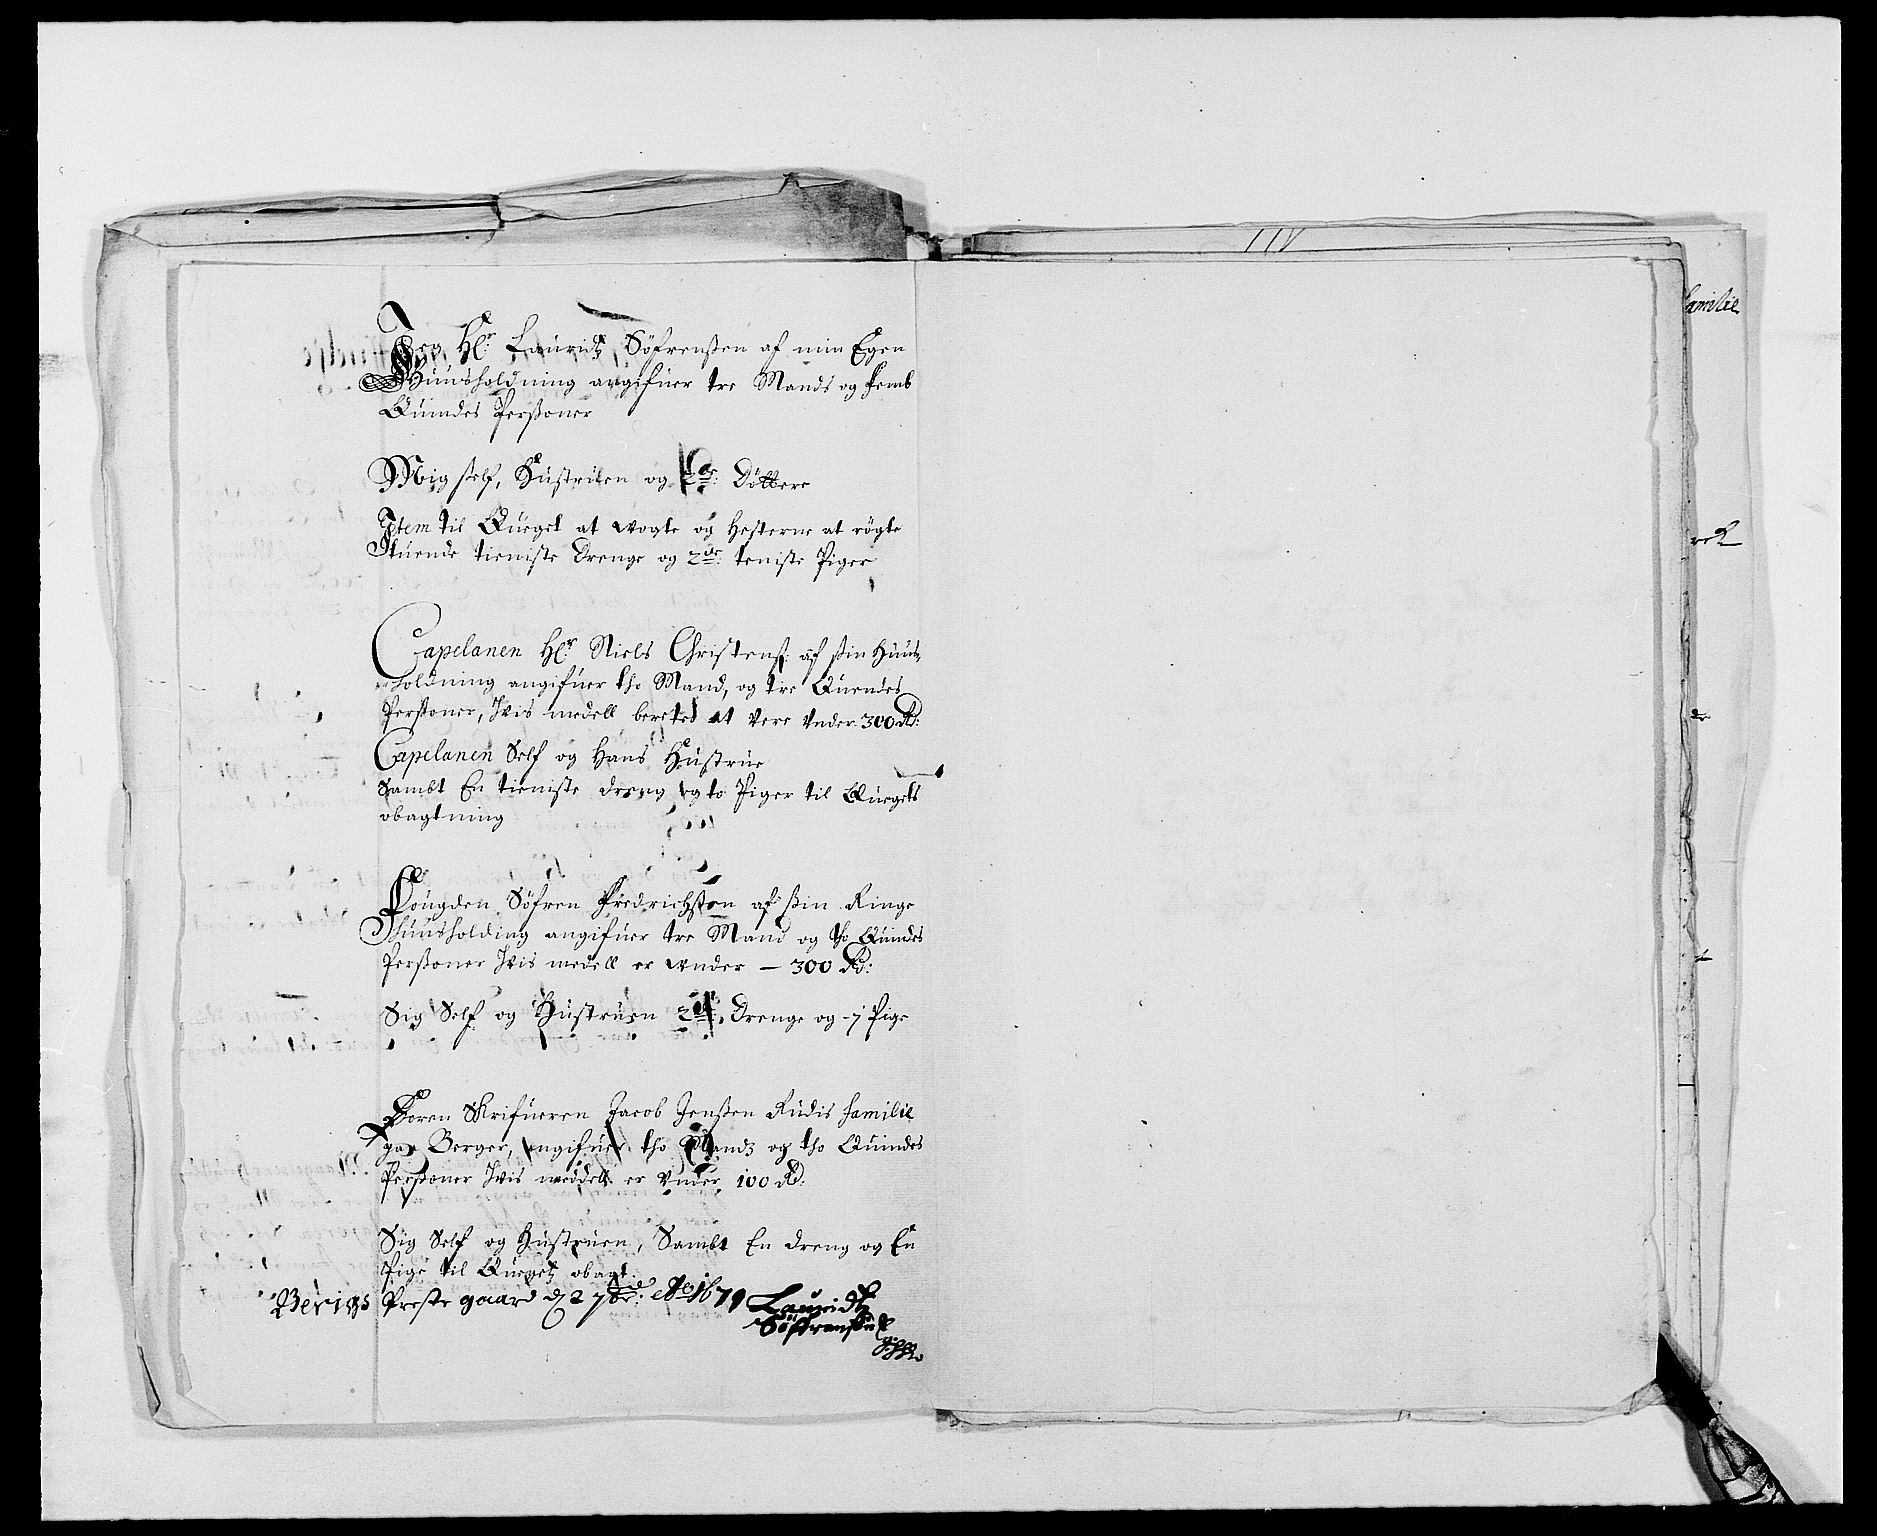 Jeg Hr. Lauridtz Söfrensßen af min Egen
Huusholdning angifuer tre Mands og femb
Quindes Perßoner
Mig ßelf, Hustruen og 2de: Döttere
Item til Queget at wogte og Hesterne at rögte
tuende tieniste Drenge og 2de: teniste Piger
Capelanen Hr. Niels Christenß: af ßin Huus-
holdning angifuer tho Mand, og tre Quendes
Perßoner, Hvis medell beretes at vere under 300 Rd:
Capelanen Self og Hans Hustrue
Sambt En tieniste dreng og to Piger til Quegets
obagtning
Fougden Söfren Fredrichsßen af ßin Ringe
Huusholding angifuer tre Mand og tho Quindes
Perßoner Hvis medell er under — 300 Rd:
Sig Self og Hustruen 2de: Drenge og 1 Pige
Soren Skrifueren Jacob Jenßen Rudis familie
paa Berger, angifuer tho Mands og tho Quindes
Perßoner Hvis meddell er under 100 Rd:
Sig Self og Hustruen, Sambt En dreng og En
Pige til Quegetz obagt:
Prestegaard d 2 7br: Ao 1679 Lauridtz
Söffrenßen
familie
117